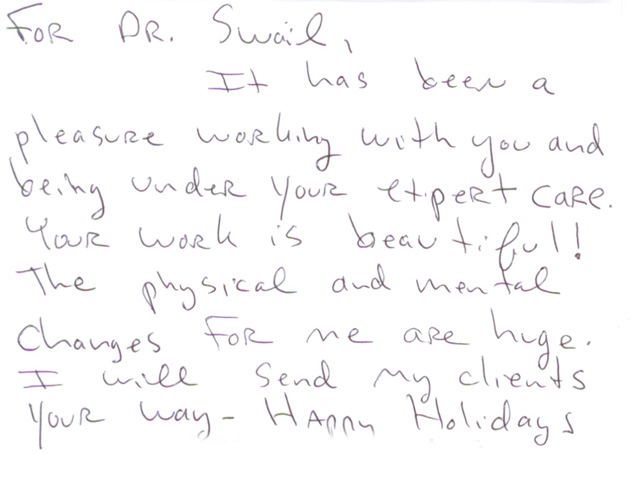 For Dr. Swail,
It has been a
pleasure working with you and
being under your expert care.
Your work is beautiful!
The physical and mental
changes for me are huge.
I will send my clients
your way - Happy Holidays